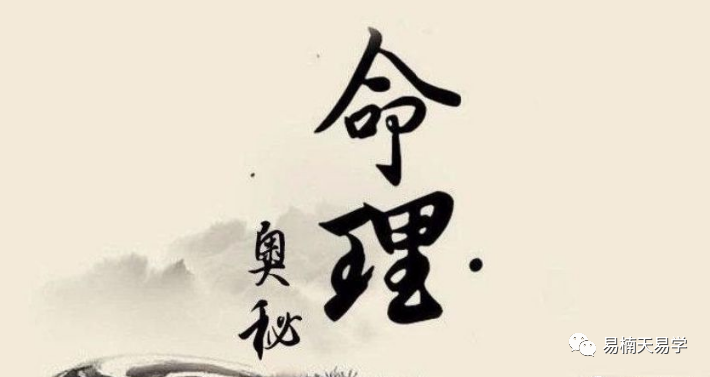 命理
奥秘
易楠天易学